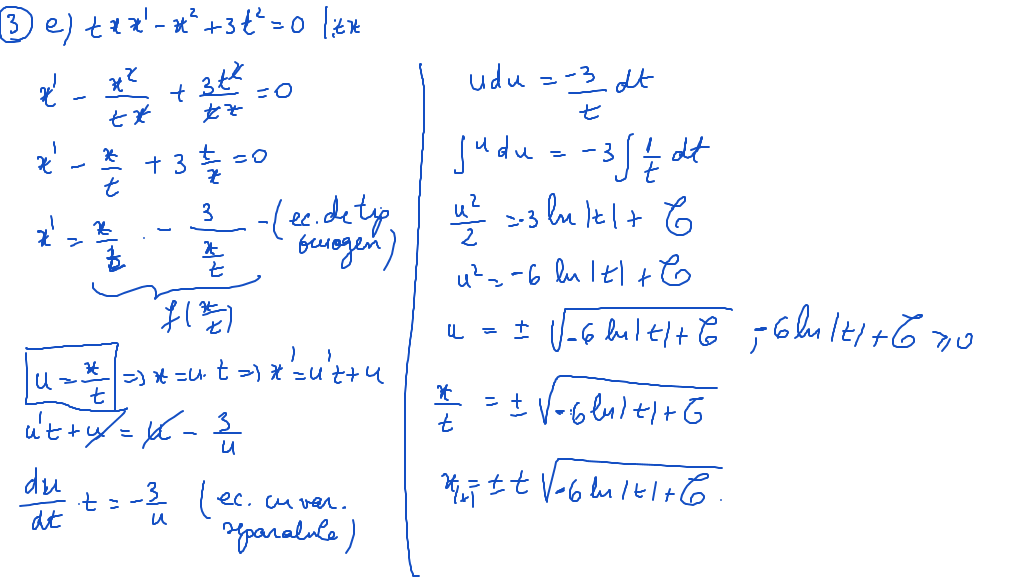 ③ e) t x x' - x² + 3t² = 0 |: tx
x' - x²/(tx) + 3t²/(tx) = 0
x' - x/t + 3 t/x = 0
x' = x/t - 3/(x/t) - (ec. de tip omogen)
f(x/t)
u = x/t ⇒ x = u·t ⇒ x' = u't + u
u't + u = u - 3/u
du/dt · t = -3/u (ec. cu var. separabile)
u du = -3/t dt
∫u du = -3 ∫ 1/t dt
u²/2 = -3 ln|t| + C
u² = -6 ln|t| + C
u = ± √(-6 ln|t| + C) ; -6 ln|t| + C ≥ 0
x/t = ± √(-6 ln|t| + C)
x(t) = ± t √(-6 ln|t| + C).